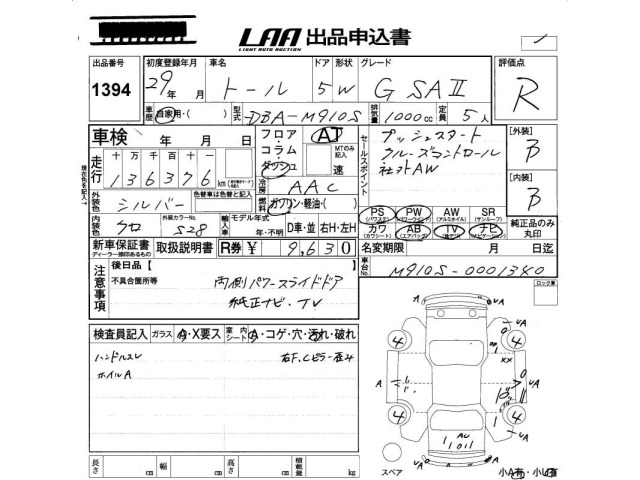 LAA 出品申込書
LIGHT AUTO AUCTION
出品番号 初度登録年月 車名 ドア 形状 グレード 評価点
1394 29年 月 トール 5W G SAⅡ R
車歴 自家用・( ) 型式 DBA-M910S 排気量 1000cc 定員 5人
車検 年 月 日
フロア・コラム・ダッシュ AT MTのみ記入 速
セールスポイント プッシュスタート
クルーズコントロール
社外AW
[外装] B
[内装] B
走行 十 万 千 百 十
136376 km
冷房 AAC
外装色 シルバー 色替車は色替と記入
燃料 ガソリン・軽油・( )
内装色 クロ 外装カラーNo. S28
輸入車 モデル年式 年・不明 D車・並 右H・左H
PS (パワステ) PW (パワーウインド) AW (アルミホイル) SR (サンルーフ)
カワ (カワシート) AB (エアバッグ) TV ナビ (ナビゲーション)
純正品のみ丸印
新車保証書 ディーラー捺印あるもの 取扱説明書 R券 ¥ 9,630
名変期限 月 日迄
車台No. M910S-0001340
ロック車
注意事項 後日品【 】
不具合箇所等 両側パワースライドドア
純正ナビ・TV
検査員記入 ガラス A・X要ス 室内シート A・コゲ・穴・汚れ・破れ
ハンドルスレ 右F,Cピラー歪み
ホイルA
長さ cm 幅 cm 高さ cm 積載量 kg
スペア 小A有・小U有